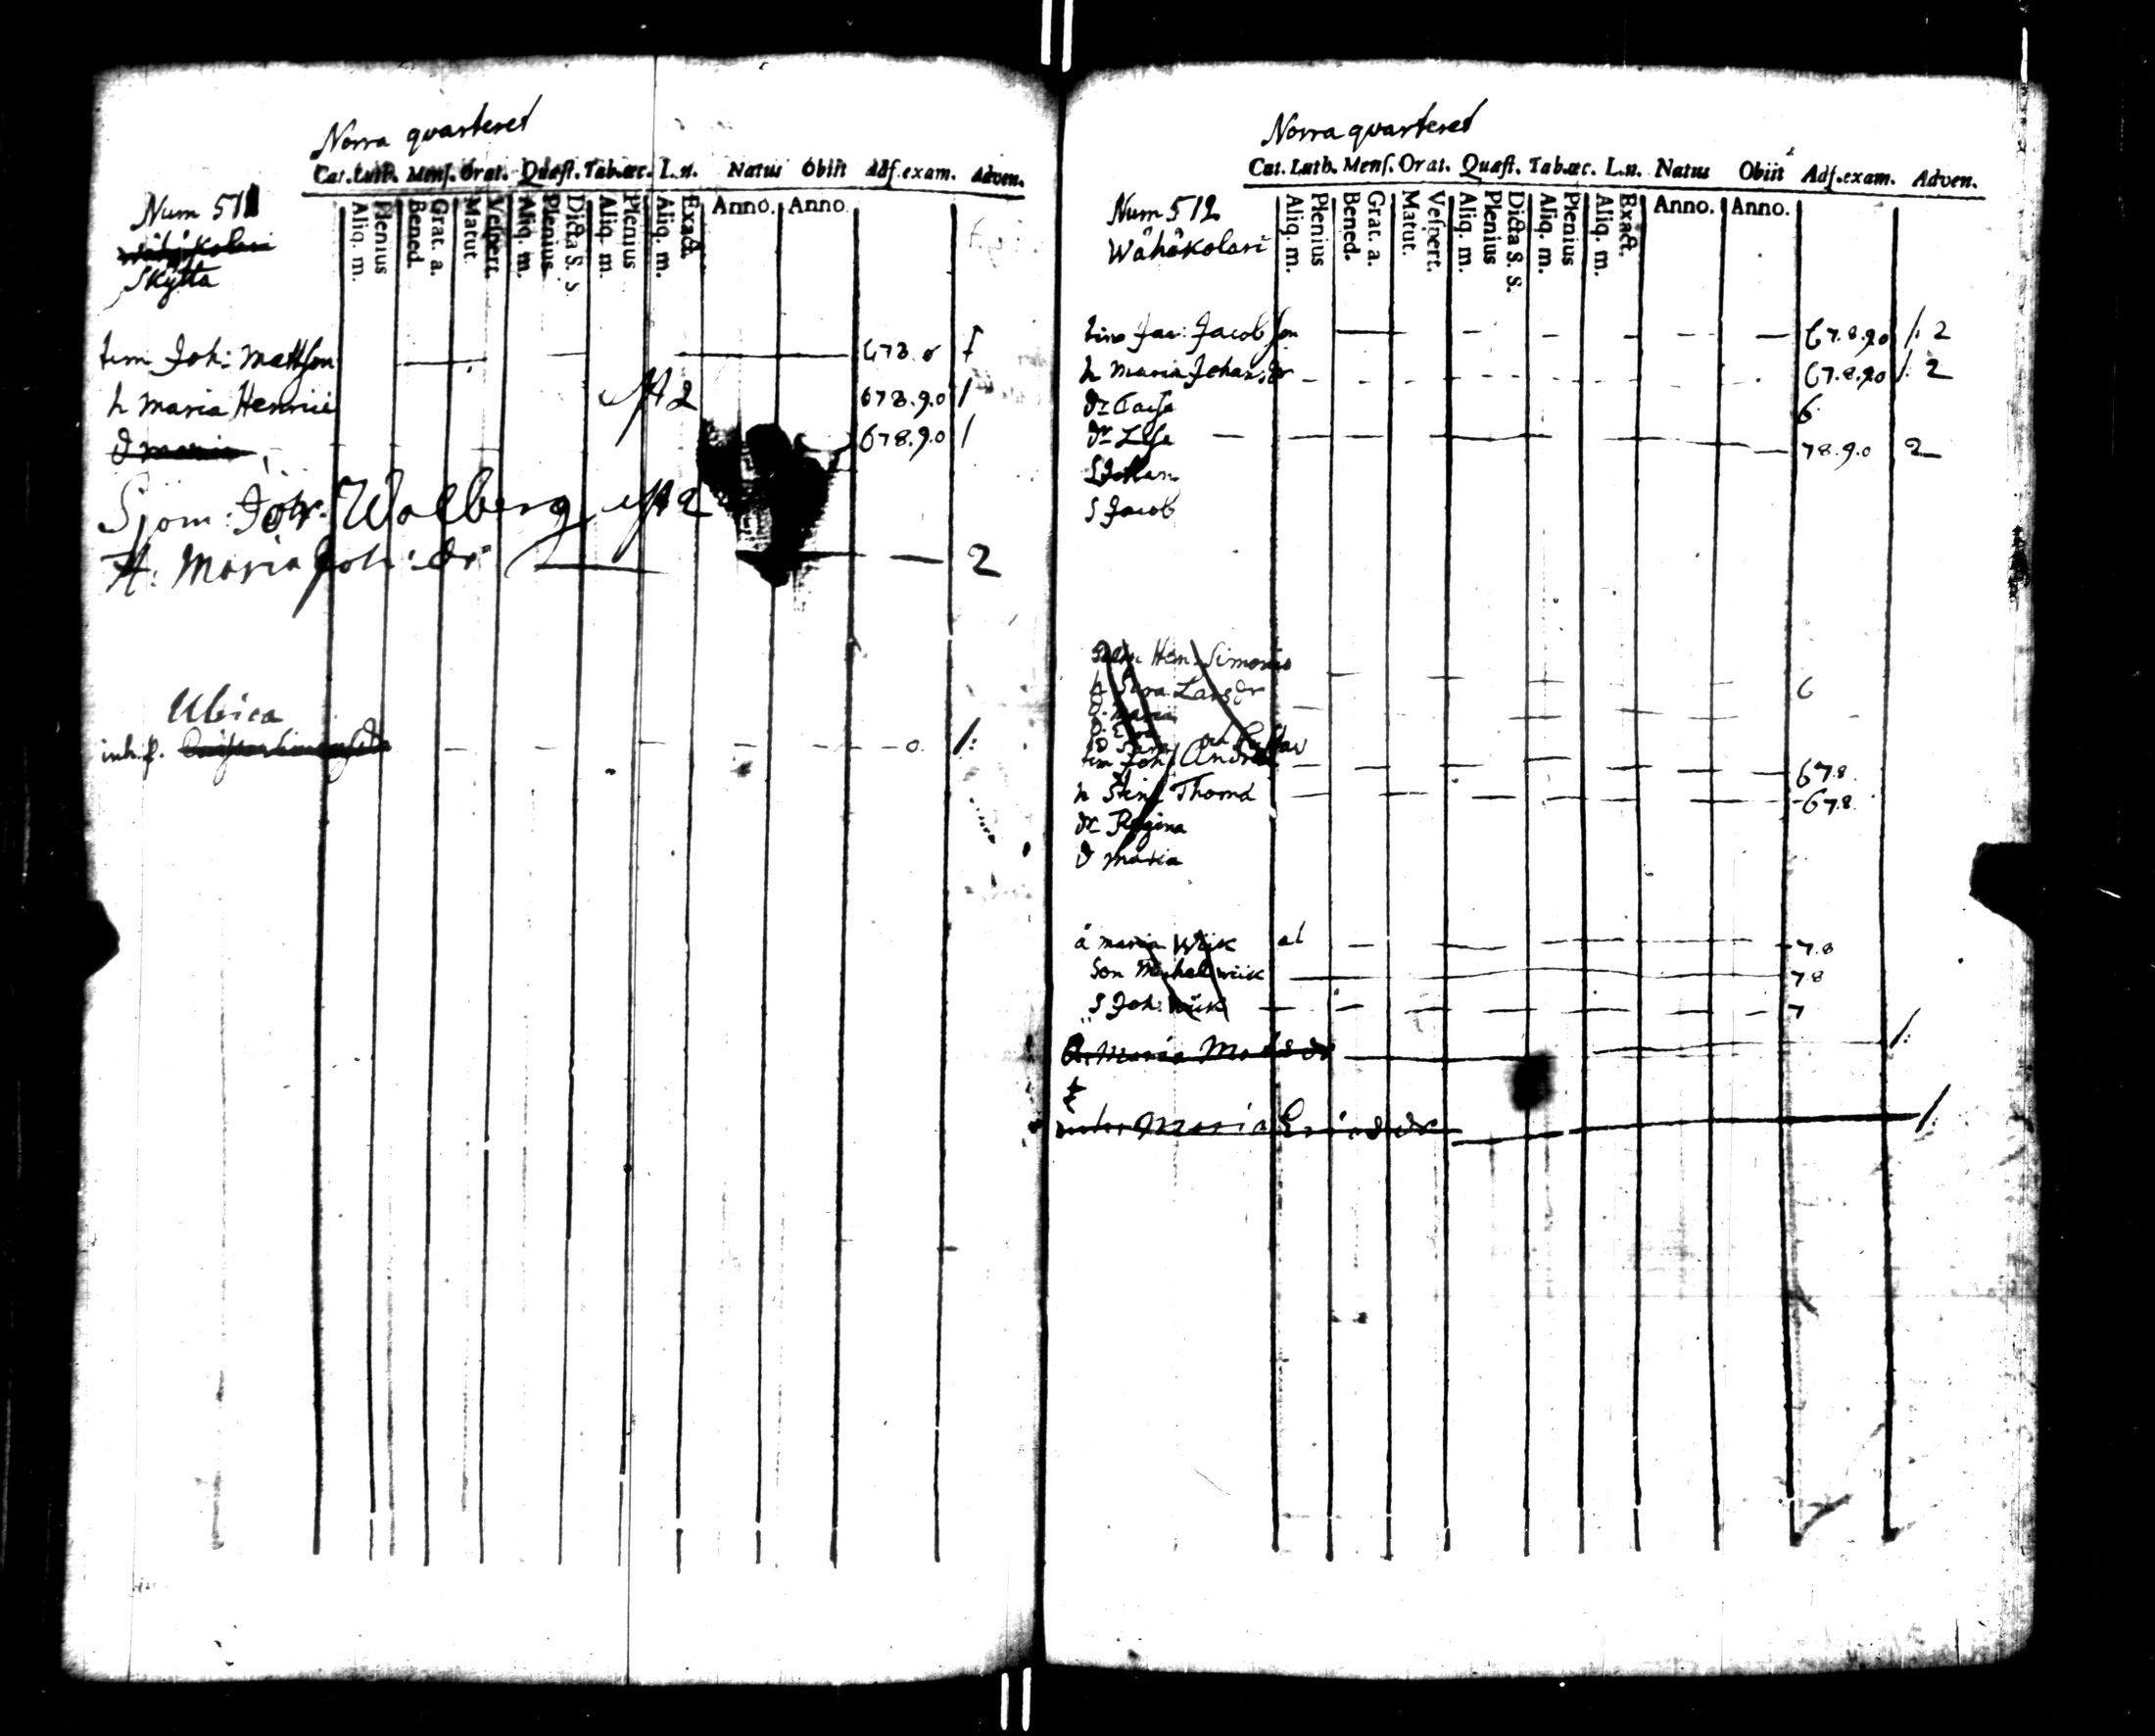 Norra quarteret
Cat. Luth. Menſ. Orat. Quæſt. Tab. œc. L. n. Natus Obiit Adſ. exam. Adven.
Aliq. m. Plenius Bened. Grat. a. Matut. Veſpert. Aliq. m. Plenius Dicta S. S. Aliq. m. Plenius Aliq. m. Exact. Anno. Anno.
Num 511
Skytta
tim Joh: Mattſon 678.0
h Maria Henrici 678.9.0 /
D Maria 678.9.0 /
Sjom: Joh: Walberg
H: Maria Joh: dr 2
Ubica
inh. 0 /:
Norra quarteret
Cat. Luth. Menſ. Orat. Quæſt. Tab. œc. L. n. Natus Obiit Adſ. exam. Adven.
Aliq. m. Plenius Bened. Grat. a. Matut. Veſpert. Aliq. m. Plenius Dicta S. S. Aliq. m. Plenius Aliq. m. Exact. Anno. Anno.
Num 512
Wåhåkolari
Jac: Jacobſon 67.8.90 /: 2
h Maria Johans dr 67.8.90 /: 2
dr Caiſa 6
dr Liſa 78.9.0 2
S Johan
S Jacob
Hen: Simonis
H Lars dr 6
D. Maria
tim Joh: Andr 678.
h Stina Thoma 678.
dr Regina
D Maria
å maria Wiik al 7.8
Son Michel wiik 78
S Joh: Wiik 7
Maria Mats dr /:
Maria Erics dr /: